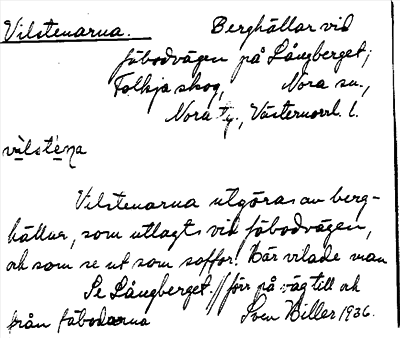 Vilstenarna. Berghällar vid
fäbodvägen på Långberget;
Folkja skog, Nora sn.,
Nora tg., Västernorrl. l.
vilste̱na
Vilstenarna utgöras av berg-
hällar, som utlagts vid fäbodvägen,
och som se ut som soffor. Här vilade man
Se Långberget. // förr på väg till och
från fäbodarna Sven Biller 1936.